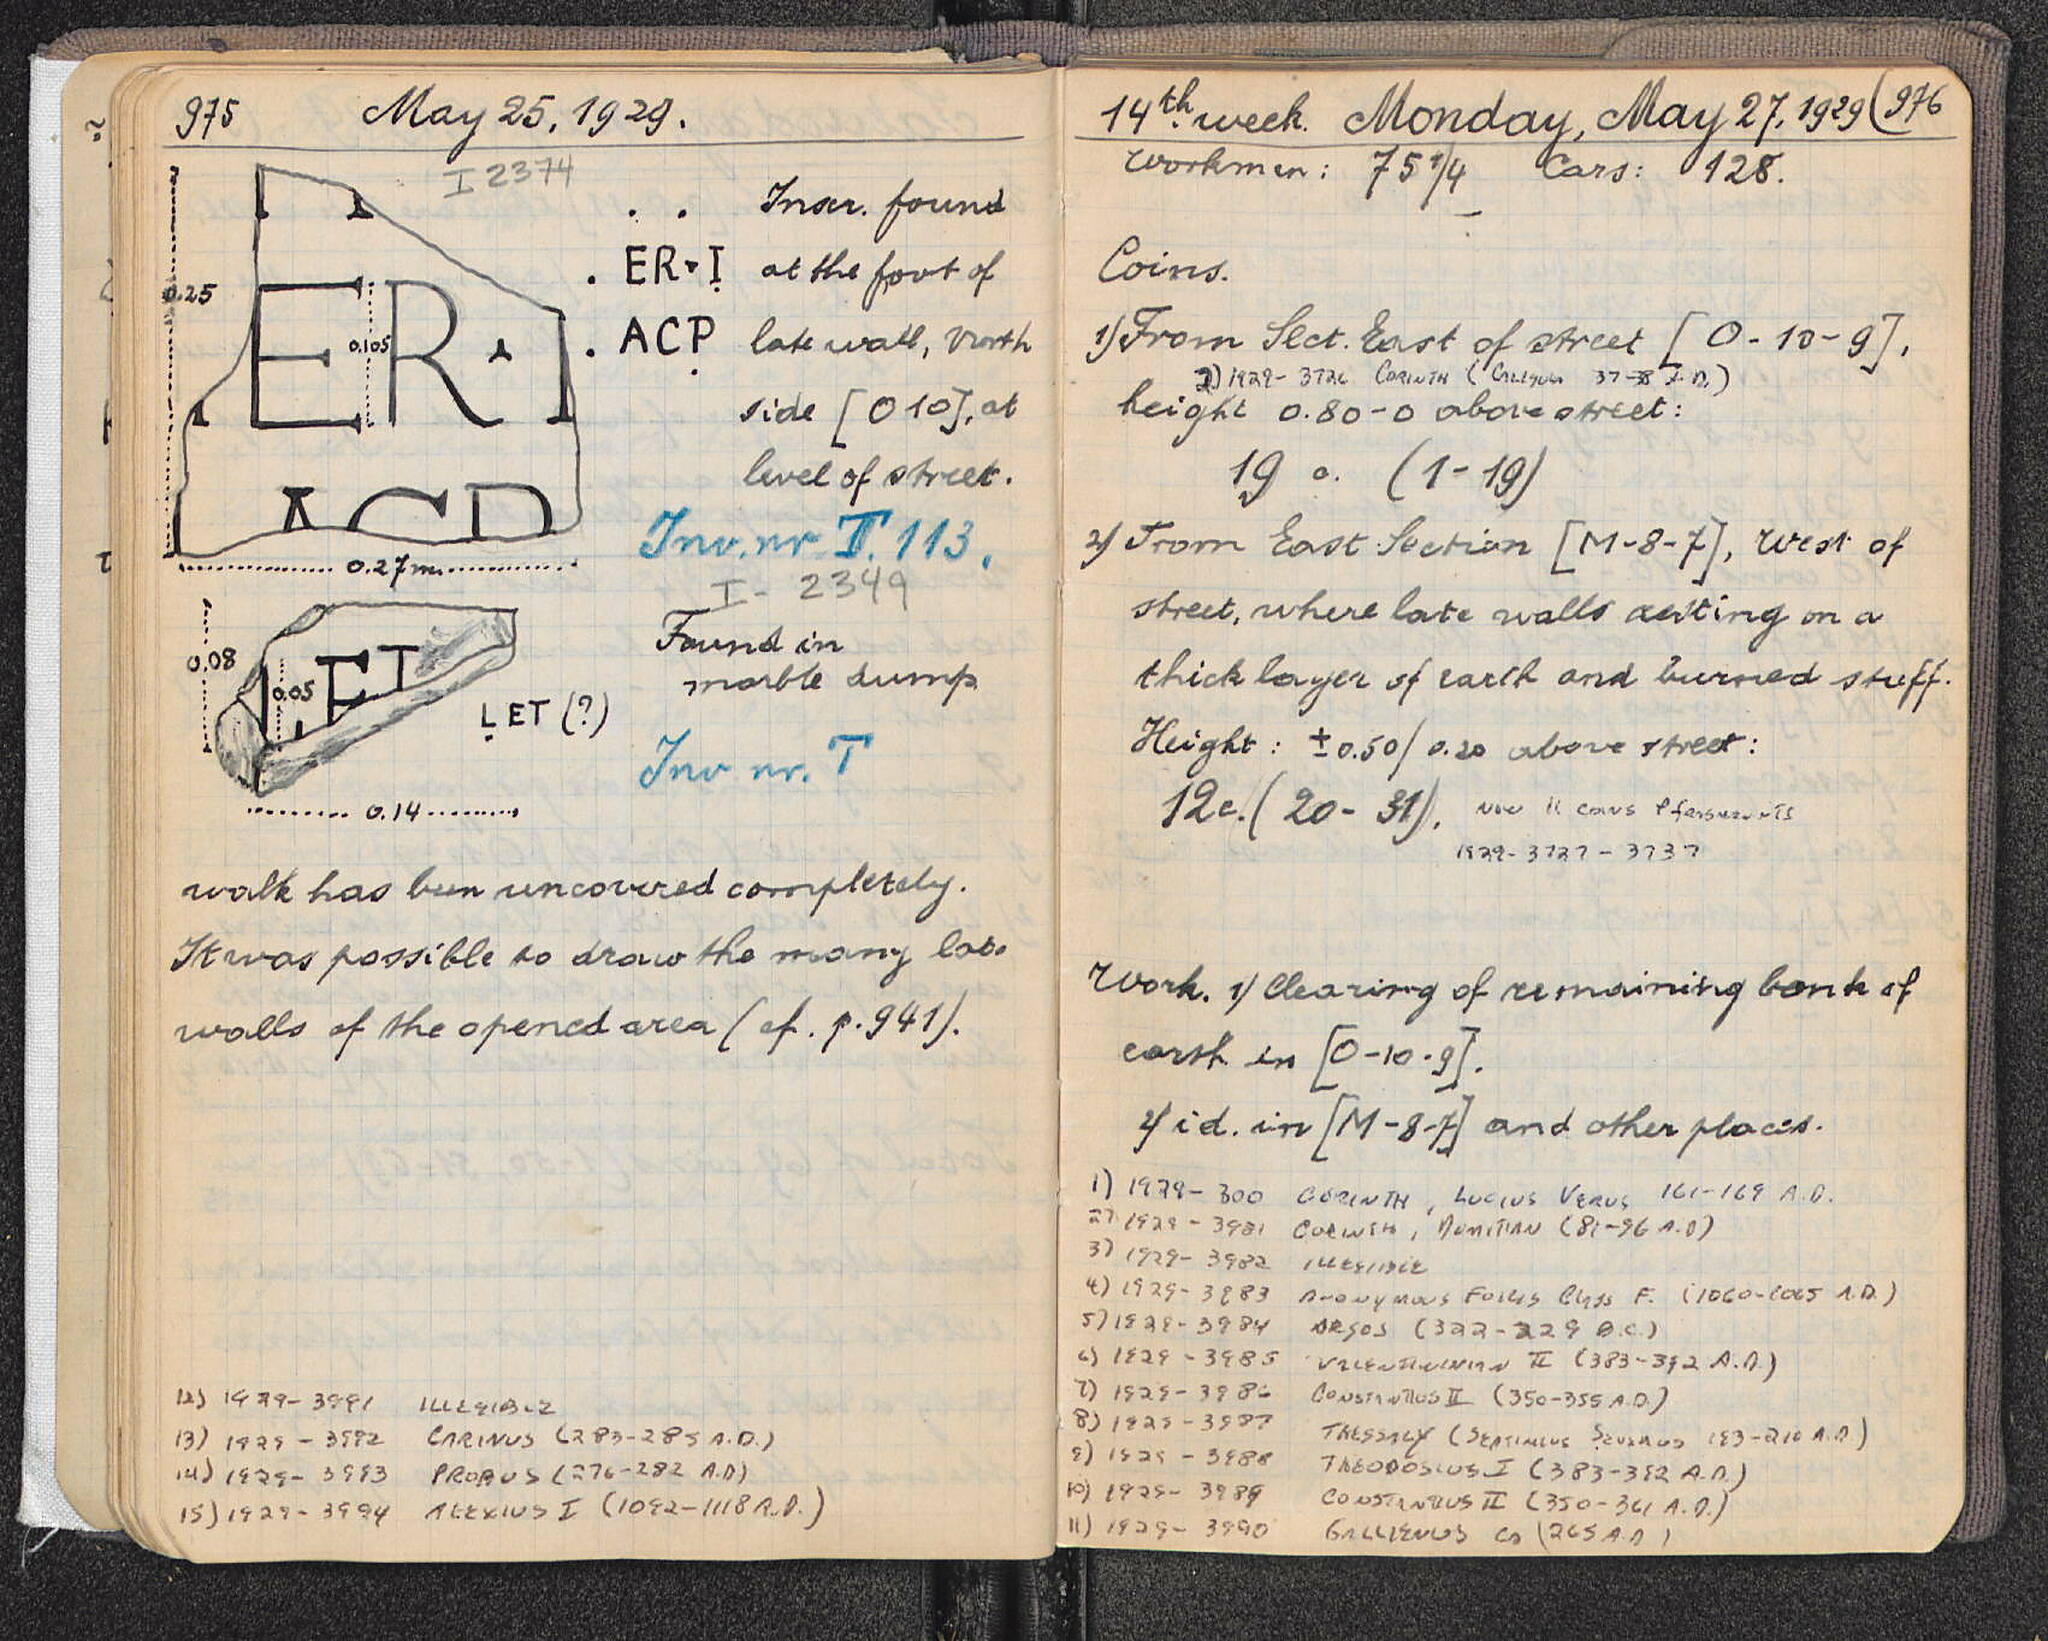 975 May 25, 1929.
I 2374
0.25
0.105
ER
ACP
0.27m.
. . Inscr. found
. ER·I at the foot of
. ACP late wall, North
side [O 10], at
level of street.
Inv. nr. I. 113.
I - 2349
0.08
0.05
LET
0.14
LET (?)
Found in
marble dump
Inv nr. I
walk has been uncovered completely.
It was possible to draw the many late
walls of the opened area (cf. p. 941).
12) 1929-3991 ILLEGIBLE
13) 1929-3992 CARINUS (283-285 A.D.)
14) 1929-3993 PROBUS (276-282 A.D)
15) 1929-3994 ALEXIUS I (1092-1118 A.D.)
14th week. Monday, May 27, 1929 (976
Workmen: 75 1/4 Cars: 128.
Coins.
1) From Sect. East of street [O-10-9],
1929-3726 CORINTH (CALIGULA 37-38 A.D.)
height 0.80-0 above street:
19 c. (1-19)
2) From East Section [M-8-7], West of
street, where late walls resting on a
thick layer of earth and burned stuff.
Height: ±0.50/0.20 above street:
12c. (20-31). NOW 11 COINS & FRAGMENTS
1929-3727-3737
Work. 1) Clearing of remaining bank of
earth in [O-10-9].
2) id. in [M-8-7] and other places.
1) 1929-300 CORINTH, LUCIUS VERUS 161-169 A.D.
2) 1929-3981 CORINTH, DOMITIAN (81-96 A.D)
3) 1929-3982 ILLEGIBLE
4) 1929-3983 ANONYMOUS FOLLIS CLASS F. (1060-1065 A.D.)
5) 1929-3984 ARGOS (322-229 B.C.)
6) 1929-3985 VALENTINIAN II (383-392 A.D.)
7) 1929-3986 CONSTANTIUS II (350-355 A.D.)
8) 1929-3987 THESSALY (SEPTIMIUS SEVERUS 193-210 A.D)
9) 1929-3988 THEODOSIUS I (383-392 A.D.)
10) 1929-3989 CONSTANTIUS II (350-361 A.D.)
11) 1929-3990 GALLIENUS (265 A.D)